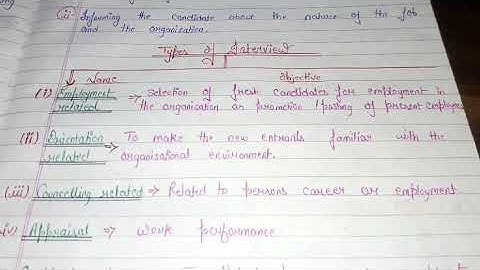 (ii) Informing the candidate about the nature of the job
and the organisation.
Types of Interview
Name objective
(i) Employment related → selection of fresh candidates for employment in
the organisation or promotion / posting of present employees
(ii) Orientation related → To make the new entrants familiar with the
organisational environment.
(iii) Councelling related → Related to persons career or employment
iv) Appraisal → work performance